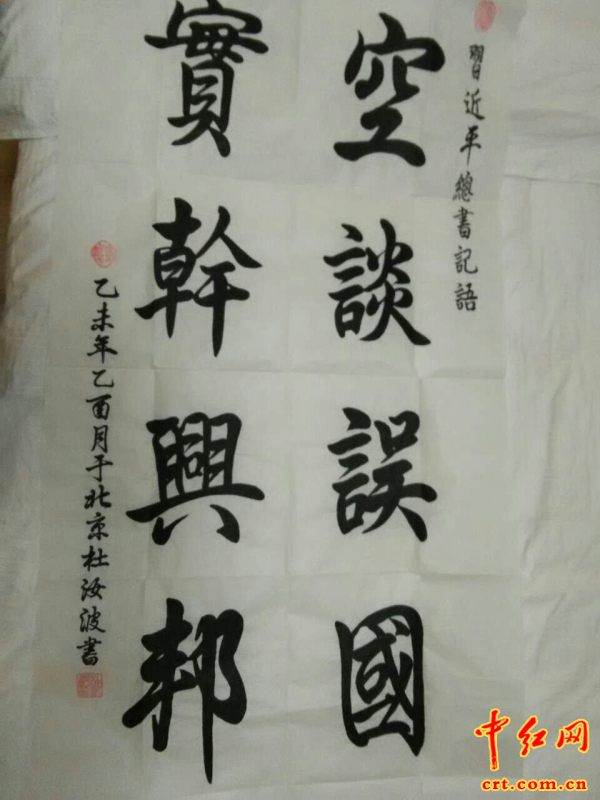 習近平總書記語
空談誤國
實幹興邦
乙未年乙酉月于北京杜汝波書
中红网
crt.com.cn